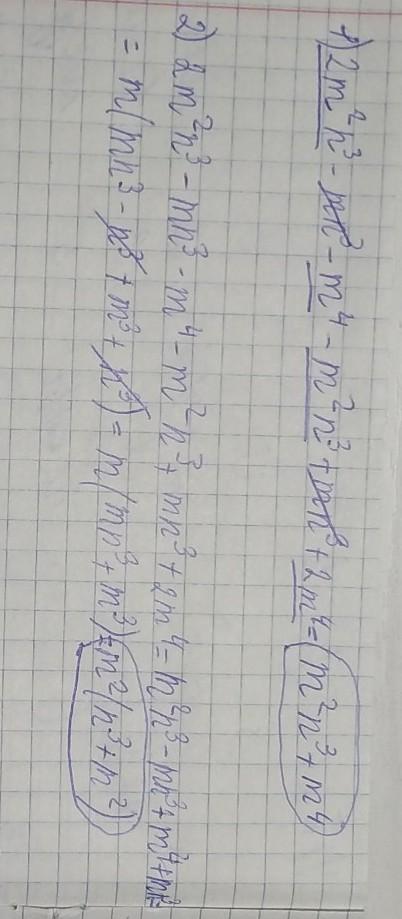 1) 2m²n³ - mn³ - m⁴ - m²n³ + mn³ + 2m⁴ = m²n³ + m⁴
2) 2m²n³ - mn³ - m⁴ - m²n³ + mn³ + 2m⁴ = m²n³ - mn³ + m⁴ + mn³ =
= m(mn³ - n³ + m³ + n³) = m(mn³ + m³) = m²(n³ + m²)